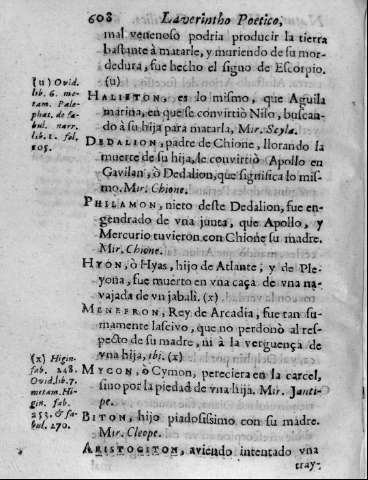 608 Laverintho Poetico,
mal venenoso podria producir la tierra
bastante à matarle, y muriendo de su mor-
dedura, fue hecho el signo de Escorpio.
(u)
(u) Ovid.
lib. 6. me-
tam. Pale-
phat. de fa-
bul. narr.
lib. 1. fol.
105.
HALIETON, es lo mismo, que Aguila
marina, en que se convirtiò Niso, buscan-
do à su hija para matarla, Mir. Scyla.
DEDALION, padre de Chione, llorando la
muerte de su hija, le convirtiò Apollo en
Gavilan, ò Dedalion, que significa lo mis-
mo. Mir. Chione.
PHILAMON, nieto deste Dedalion, fue en-
gendrado de vna junta, que Apollo, y
Mercurio tuvieron con Chione su madre.
Mir. Chione.
HYON, ò Hyas, hijo de Atlante, y de Ple-
yona, fue muerto en vna caça de vna na-
vajada de vn jabali. (x)
MENEFRON, Rey de Arcadia, fue tan su-
mamente lascivo, que no perdonò al res-
pecto de su madre, ni à la verguença de
vna hija, ibi. (x)
(x) Higin.
fab. 248.
Ovid. lib. 7.
metam. Hi-
gin. fab.
253. & fa-
bul. 270.
MYCON, ò Cymon, pereciera en la carcel,
sino por la piedad de vna hija. Mir. Janti-
pe.
BITON, hijo piadosissimo con su madre.
Mir. Cleope.
ARISTOGITON, aviendo intentado vna
tray-